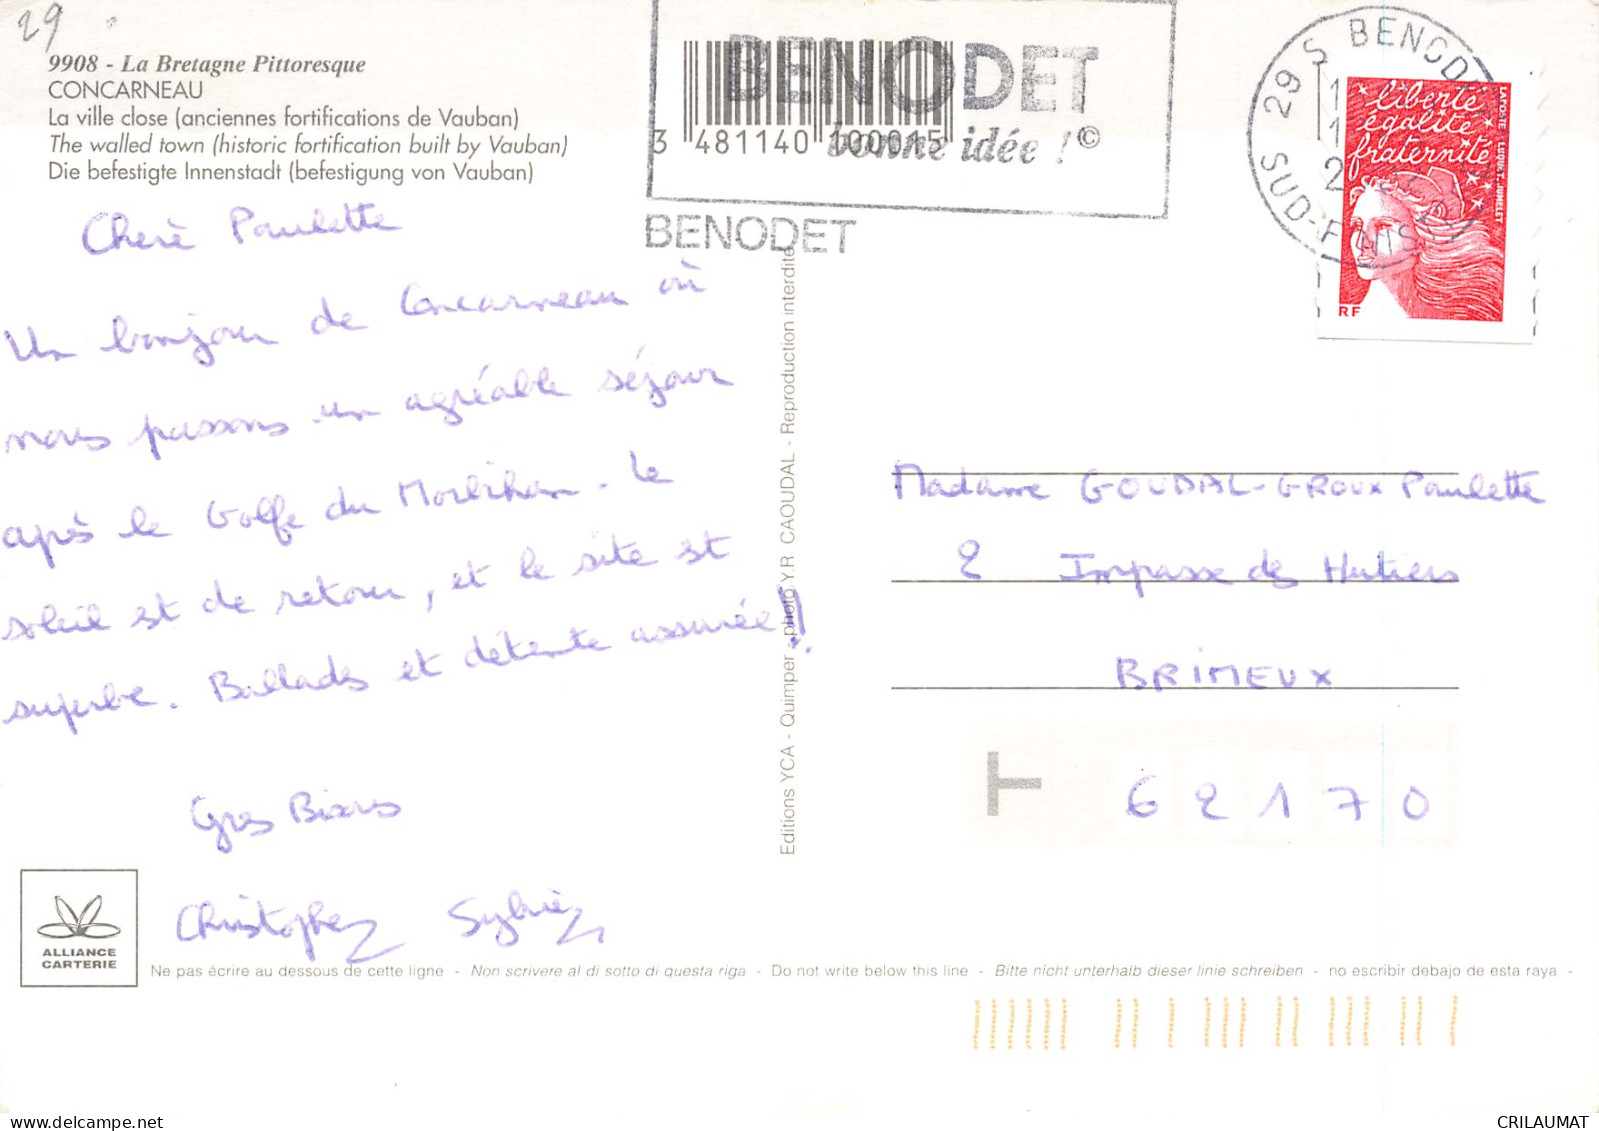 29
9908 - La Bretagne Pittoresque
CONCARNEAU
La ville close (anciennes fortifications de Vauban)
The walled town (historic fortification built by Vauban)
Die befestigte Innenstadt (befestigung von Vauban)
BENODET
bonne idée !©
3 481140 100015
BENODET
29 S BENODET
SUD-FINIS
liberté
égalité
fraternité
LA POSTE LUQUET-JUMELET
RF
Cherè Paulette
Un bonjour de Concarneau où
nous passons un agréable séjour
après le Golfe du Morbihan. Le
soleil est de retour, et le site est
superbe. Ballades et détente assurée!!
Gros Bisous
Christophe Sylvie
Editions YCA - Quimper - photo Y.R CAOUDAL - Reproduction interdite
Madame GOUDAL-GROUX Paulette
2 Impasse des Hutiers
BRIMEUX
T
62170
ALLIANCE
CARTERIE
Ne pas écrire au dessous de cette ligne - Non scrivere al di sotto di questa riga - Do not write below this line - Bitte nicht unterhalb dieser linie schreiben - no escribir debajo de esta raya -
CRILAUMAT